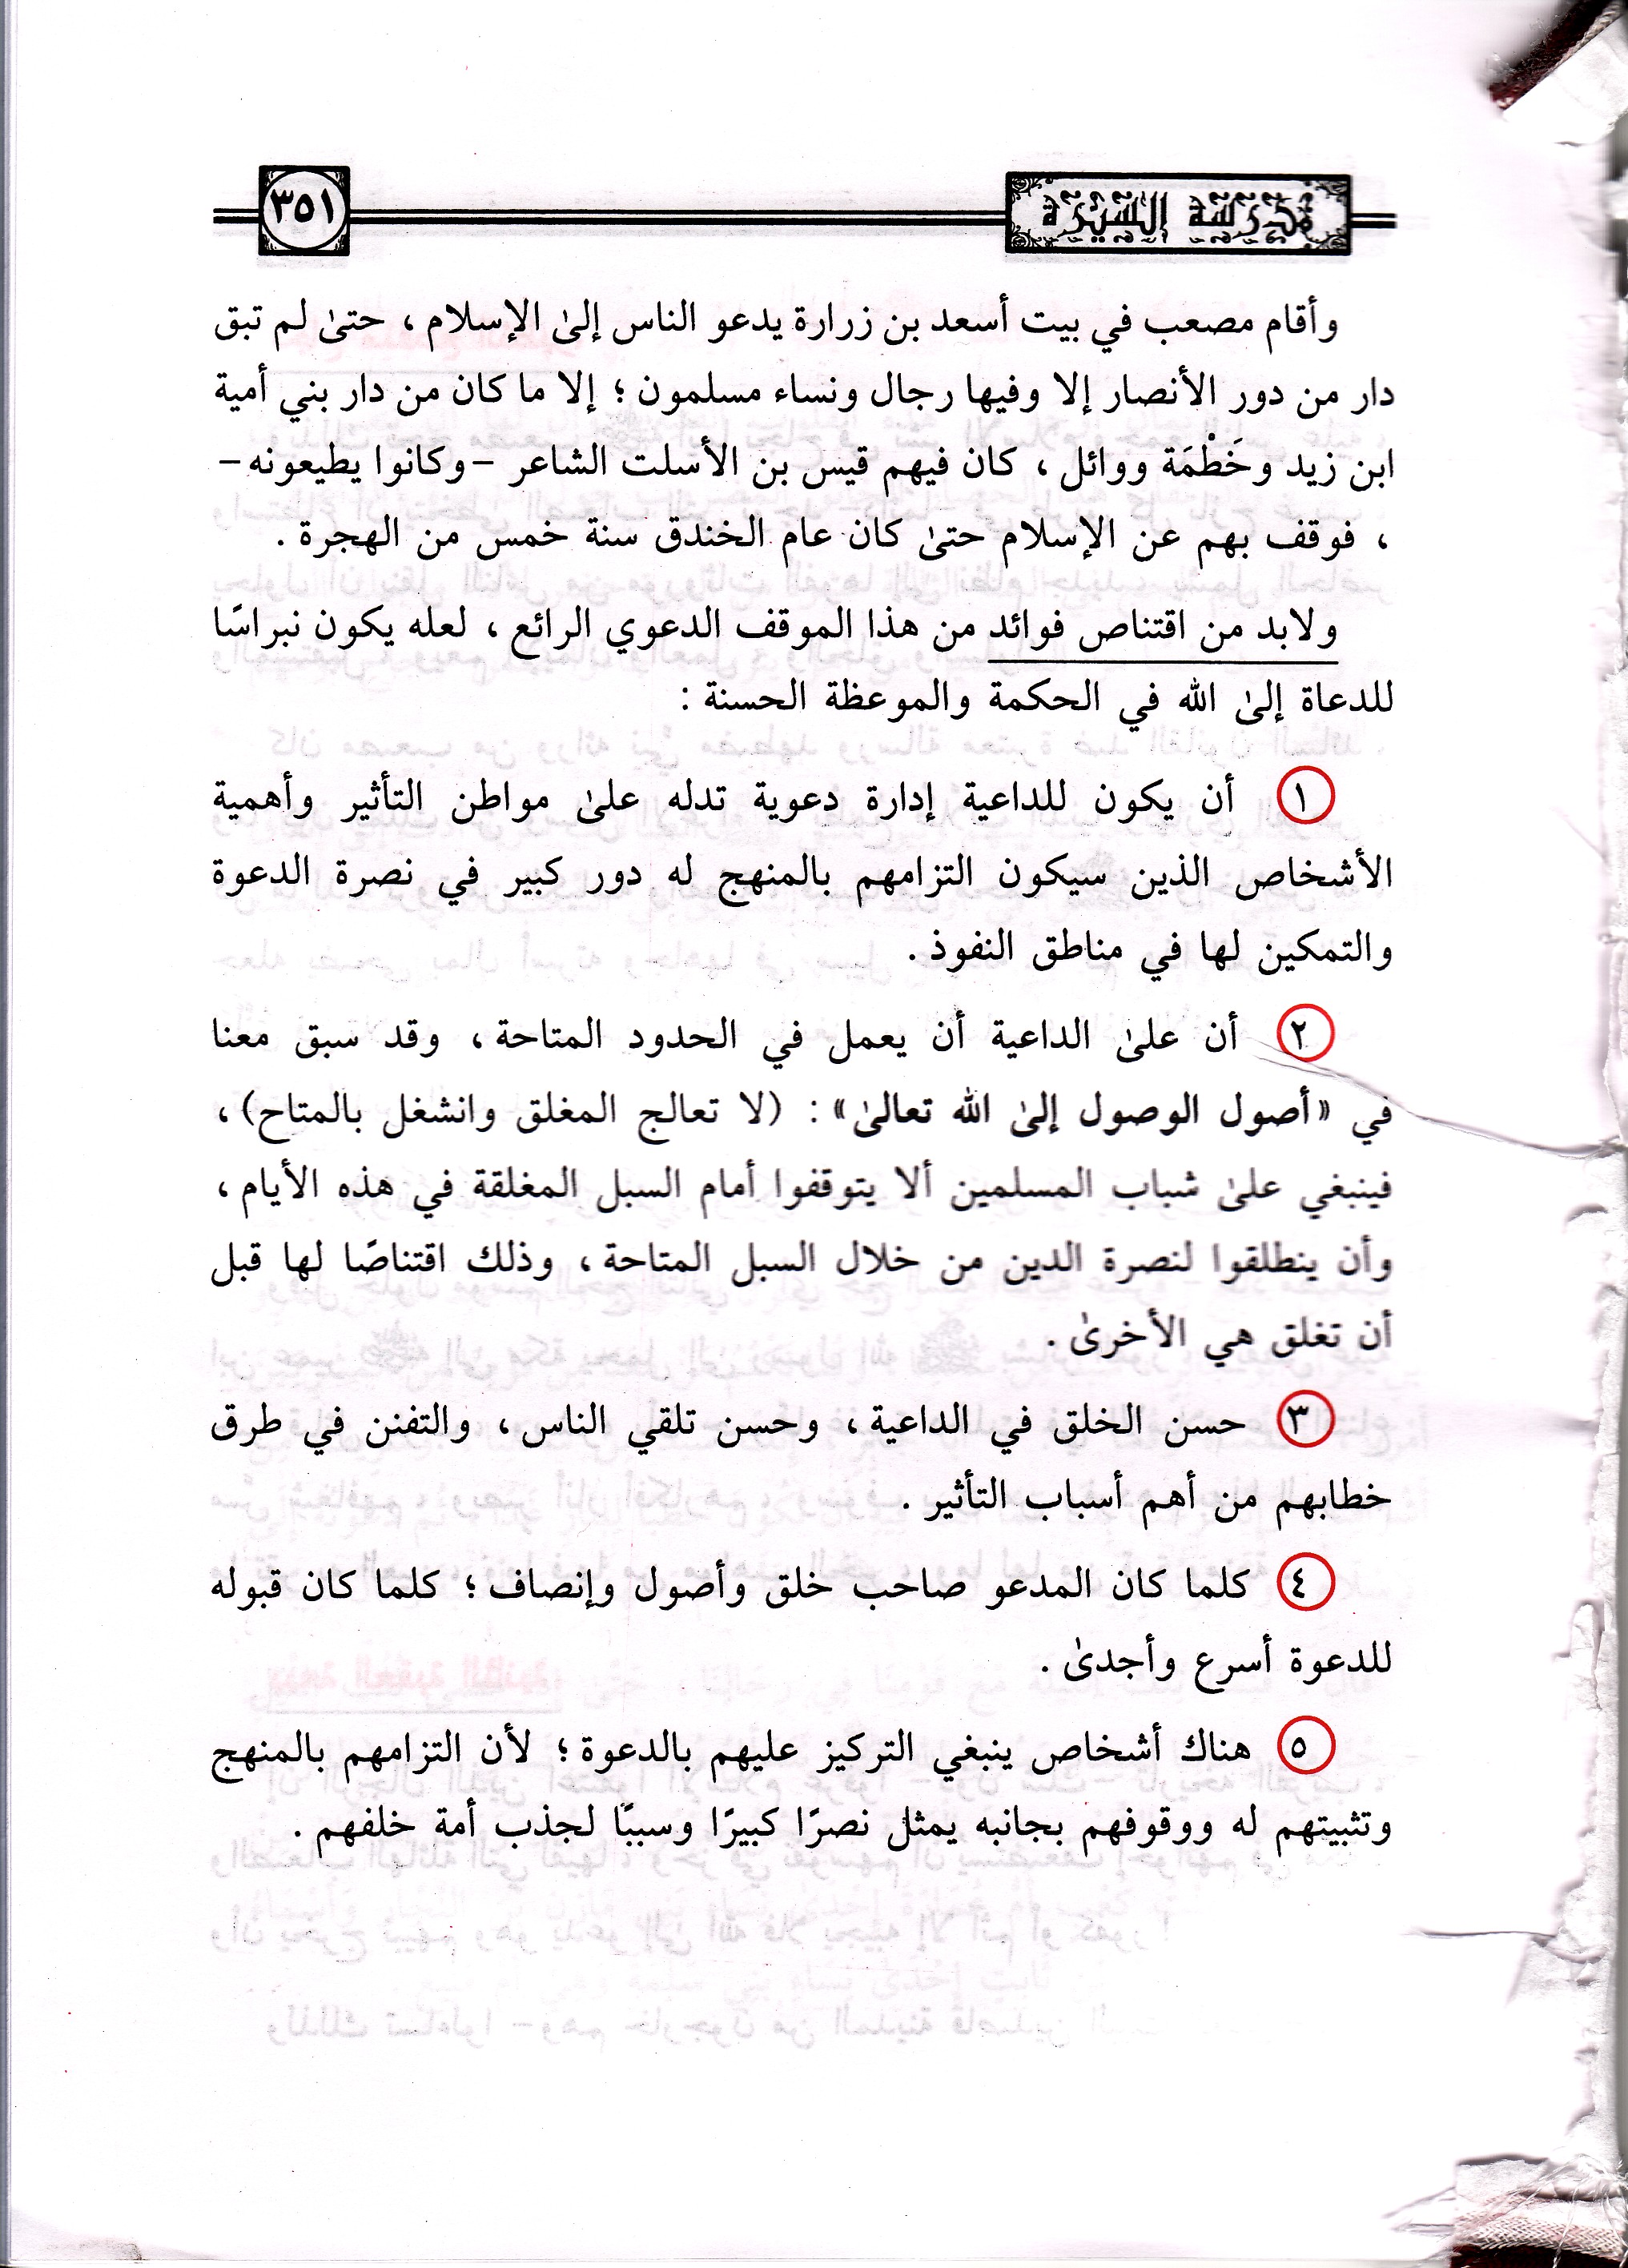 مدرسة السيرة
٣٥١
وأقام مصعب في بيت أسعد بن زرارة يدعو الناس إلىٰ الإسلام ، حتىٰ لم تبق
دار من دور الأنصار إلا وفيها رجال ونساء مسلمون ؛ إلا ما كان من دار بني أمية
ابن زيد وخَطْمَة ووائل ، كان فيهم قيس بن الأسلت الشاعر –وكانوا يطيعونه–
، فوقف بهم عن الإسلام حتىٰ كان عام الخندق سنة خمس من الهجرة .
ولابد من اقتناص فوائد من هذا الموقف الدعوي الرائع ، لعله يكون نبراسًا
للدعاة إلىٰ الله في الحكمة والموعظة الحسنة :
١ أن يكون للداعية إدارة دعوية تدله علىٰ مواطن التأثير وأهمية
الأشخاص الذين سيكون التزامهم بالمنهج له دور كبير في نصرة الدعوة
والتمكين لها في مناطق النفوذ .
٢ أن علىٰ الداعية أن يعمل في الحدود المتاحة ، وقد سبق معنا
في «أصول الوصول إلىٰ الله تعالىٰ» : (لا تعالج المغلق وانشغل بالمتاح) ،
فينبغي علىٰ شباب المسلمين ألا يتوقفوا أمام السبل المغلقة في هذه الأيام ،
وأن ينطلقوا لنصرة الدين من خلال السبل المتاحة ، وذلك اقتناصًا لها قبل
أن تغلق هي الأخرىٰ .
٣ حسن الخلق في الداعية ، وحسن تلقي الناس ، والتفنن في طرق
خطابهم من أهم أسباب التأثير .
٤ كلما كان المدعو صاحب خلق وأصول وإنصاف ؛ كلما كان قبوله
للدعوة أسرع وأجدىٰ .
٥ هناك أشخاص ينبغي التركيز عليهم بالدعوة ؛ لأن التزامهم بالمنهج
وتثبيتهم له ووقوفهم بجانبه يمثل نصرًا كبيرًا وسببًا لجذب أمة خلفهم .